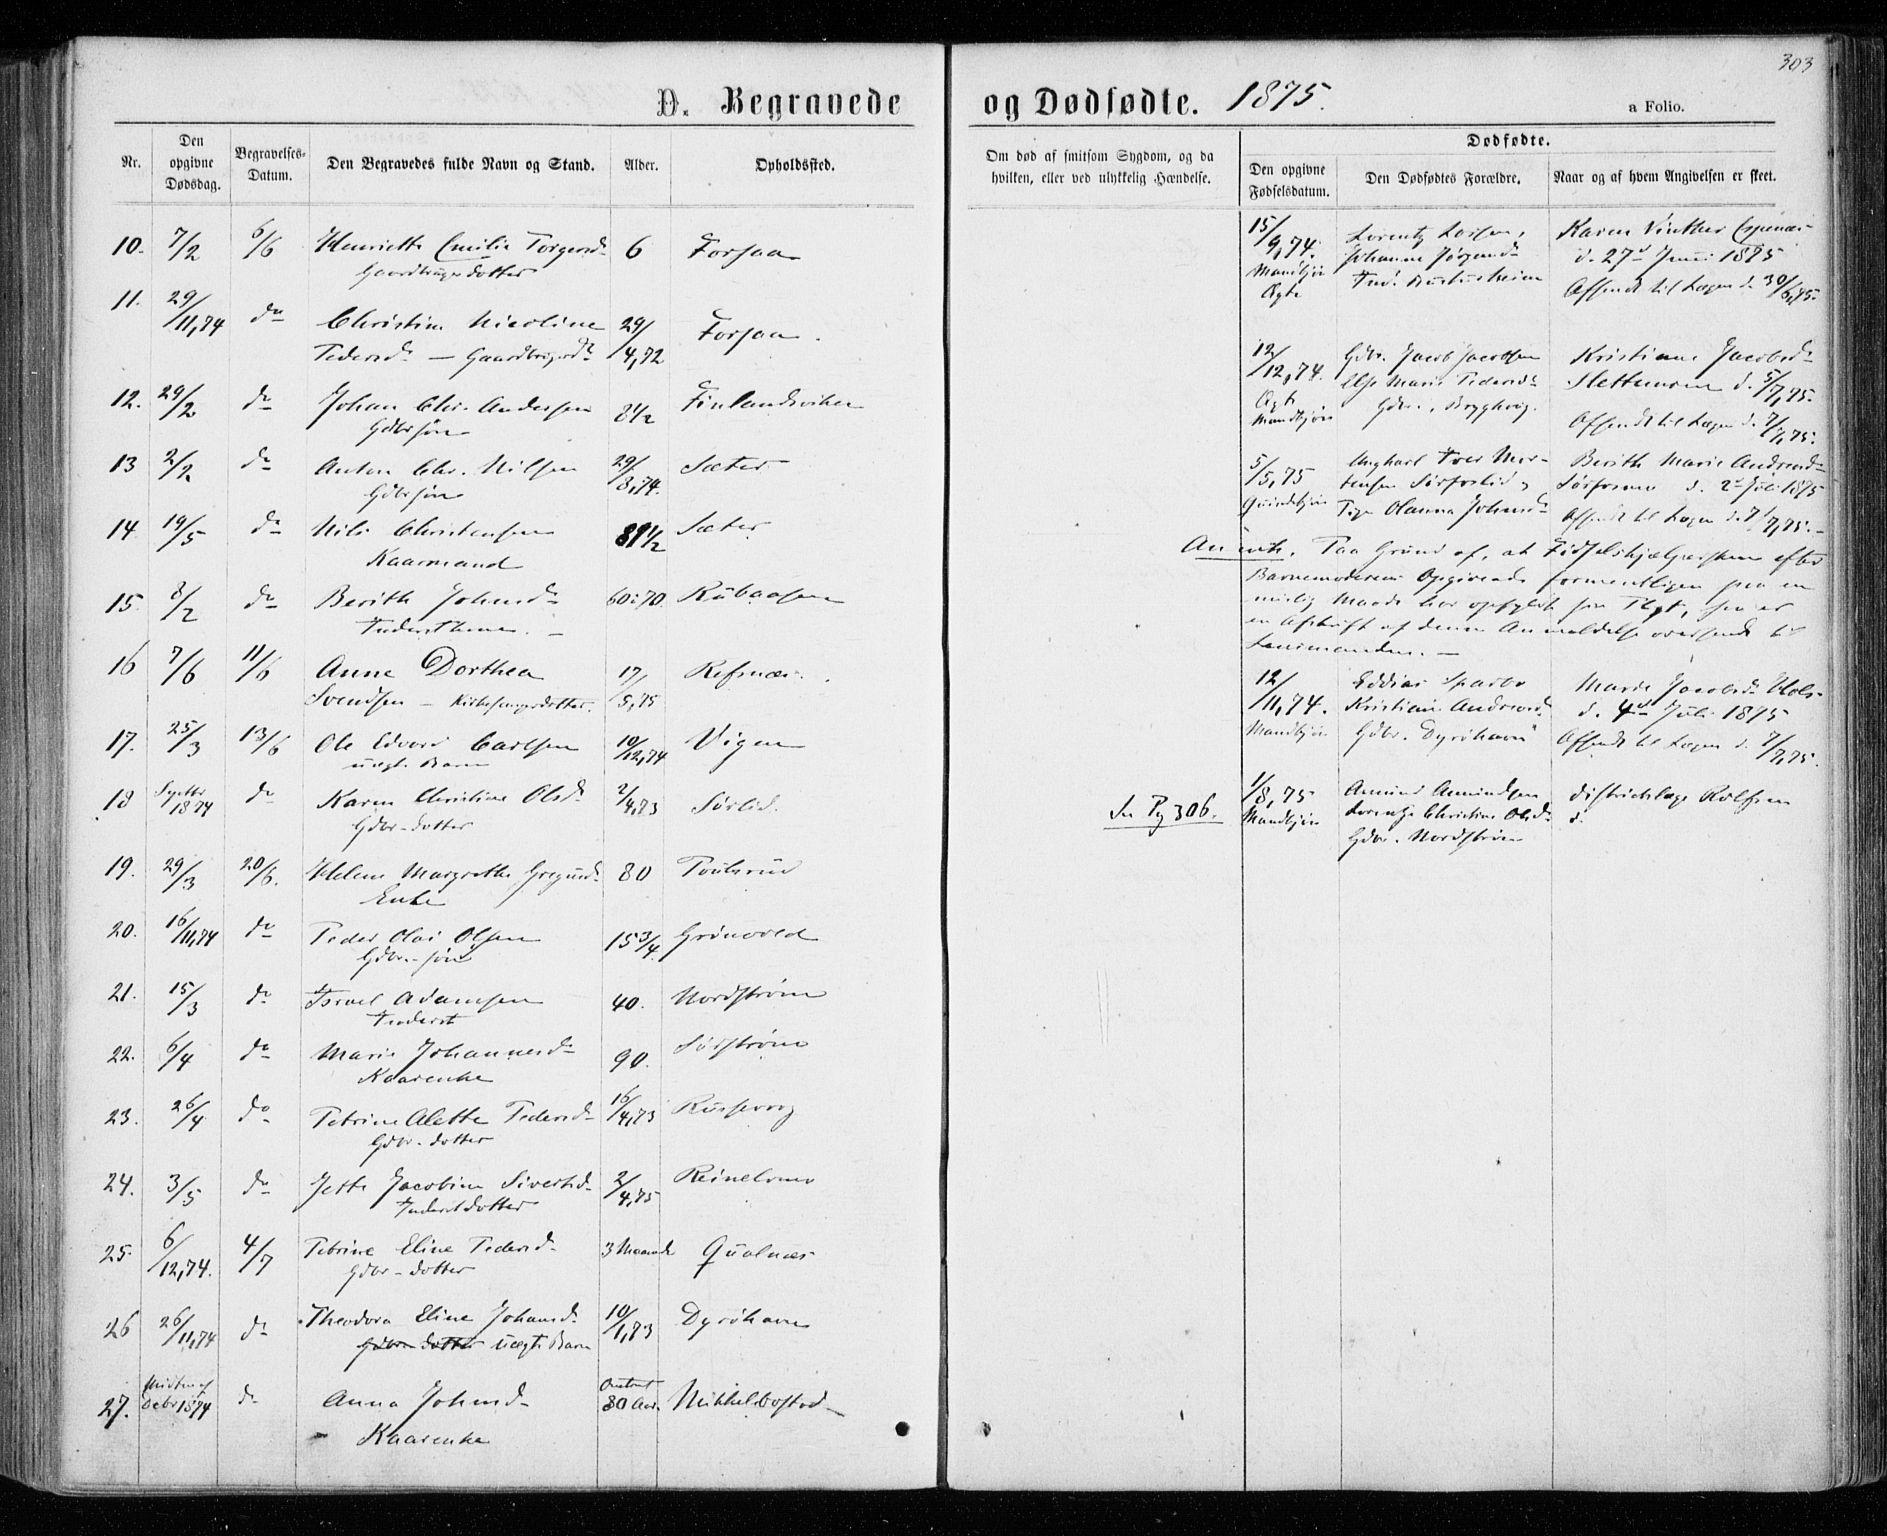 303
D. Begravede og Dødfødte. 1875.
a Folio.
Nr.
Den opgivne Dødsdag.
Begravelses-Datum.
Den Begravedes fulde Navn og Stand.
Alder.
Opholdssted.
Om død af smitsom Sygdom, og da hvilken, eller ved ulykkelig Hændelse.
Dødfødte.
Den opgivne Fødselsdatum.
Den Dødfødtes Forældre.
Naar og af hvem Angivelsen er skeet.
10. 7/2 6/6 Henriette Emilie Torgersd. 6 Forsaa
Gaardbrugerdotter
11. 29/11,74 do Christine Nicoline 29/4,72 Forsaa.
Pedersd. - Gaardbrugerdr
12. 29/2 do Johan Chr. Andersen 8 1/2 Finlandsviken
Gdbrsøn
13 2/2 do Anton Chr. Nilsen 29/8,74. Sæter
Gdbrsøn
14. 19/5 do Nils Christensen 81 1/2 Sæter
Kaarmand
15. 8/2 do Berith Johnsd. 60 à 70. Rubaasen
16 7/6 11/6 Anne Dorthea 17/5,75 Refsnæs.
Svendsen - Kirkesangerdotter.
17. 25/3 13/6 Ole Edvard Carlsen 10/12,74 Vigen
uægt. Barn
18 Septbr 1874 do Karen Christine Olsd. 2/4,73 Sørlid.
Gdbr-dotter
19. 29/3 20/6. Helene Margrethe 80
Enke
20. 16/11,74 do Peder Olai Olsen 15 3/4. Grunvold
Gdbr.-søn
21. 15/3 do Israel Adamsen 40. Nordstrøm
Inderst
22. 6/4 do Marie Johannesd. 90. Sørstrøm
Kaarenke
23. 26/4 do Petrine Alette Pedersd. 16/4,73 Russevog
Gdbr.dotter
24. 3/5 do Jette Jacobine Sivertsd. 2/4,75
Inderstdotter
25. 6/12,74. 4/7 Petrine Eline Pedersd. 3 Maaneder Qualnæs
Gdbr-dotter
26 26/11,74 do Theodora Eline Johansd. 10/1,73 Dyrøhavn
Gdbr. dotter uægte Barn
27. Midten af Debr 1874 do Anna Johnsd. Omtrent 80 Aar. Mikkelbostad
Kaarenke
15/9,74. Mandkjøn Ægte
Lorentz Larsen, Johanne Jørgensd.
Karen Vinther Espenæs
d. 27d Juni 1875
Afsendt til Lægen d. 30/6,75.
12/12,74. Ægte Mandkjøn
Gdbr. Jacob Jacobsen
Else Marie Pedersd.
Gdbr., Bryghvig.
Kristiane Jacobsd.
Slettmoen d. 5/7,75.
Afsendt til Lægen d. 7/7,75.
5/5,75 Quindekjøn
Ungkarl Iver Mortensen Sørforslid og
Pige Olanna Johnsd.
Berith Marie Andreasd.
Sørfosmo d. 2d Juli 1875
Afsendt til Lægen d. 7/7,75.
Anmk. Paa Grund af, at Fødselshjælpersken efter
Barnemoderens Opgivende formentligen paa en
ulovlig Maade har opfyldt sin Pligt, saa er
en Afskrift af denne Anmeldelse oversendt til
Lensmanden. -
12/11,74. Mandkjøn
Eddias Sparbo
Kristiane Andreasd.
Gdbr. Dyrøhavn
Marie Jacobsd. Hols-
d. 4d Juli 1875
Afsendt til Lægen d. 7/7,75.
Se Pg 306.
1/8,75 Mandkjøn
Amund Amundsen
Lorentze Christine Olsd.
Gdbr. Nordstrøm
Distriktslæge Rolfsen
d.